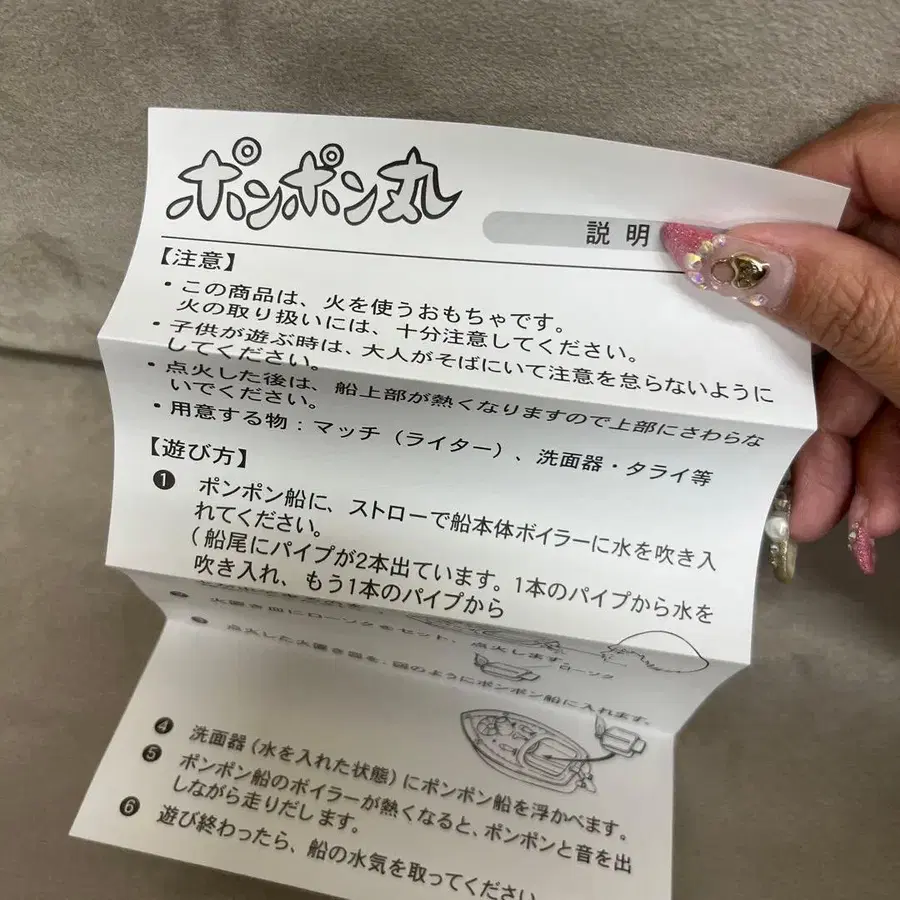 ポンポン丸
説明
【注意】
・この商品は、火を使うおもちゃです。
火の取り扱いには、十分注意してください。
・子供が遊ぶ時は、大人がそばにいて注意を怠らないように
してください。
・点火した後は、船上部が熱くなりますので上部にさわらな
いでください。
・用意する物：マッチ（ライター）、洗面器・タライ等
【遊び方】
❶ ポンポン船に、ストローで船本体ボイラーに水を吹き入
れてください。
（船尾にパイプが2本出ています。1本のパイプから水を
吹き入れ、もう1本のパイプから
火置き皿にローソクをセット、点火します。
ローソク
点火した火置き皿を、図のようにポンポン船に入れます。
❹ 洗面器（水を入れた状態）にポンポン船を浮かべます。
❺ ポンポン船のボイラーが熱くなると、ポンポンと音を出
しながら走りだします。
❻ 遊び終わったら、船の水気を取ってください